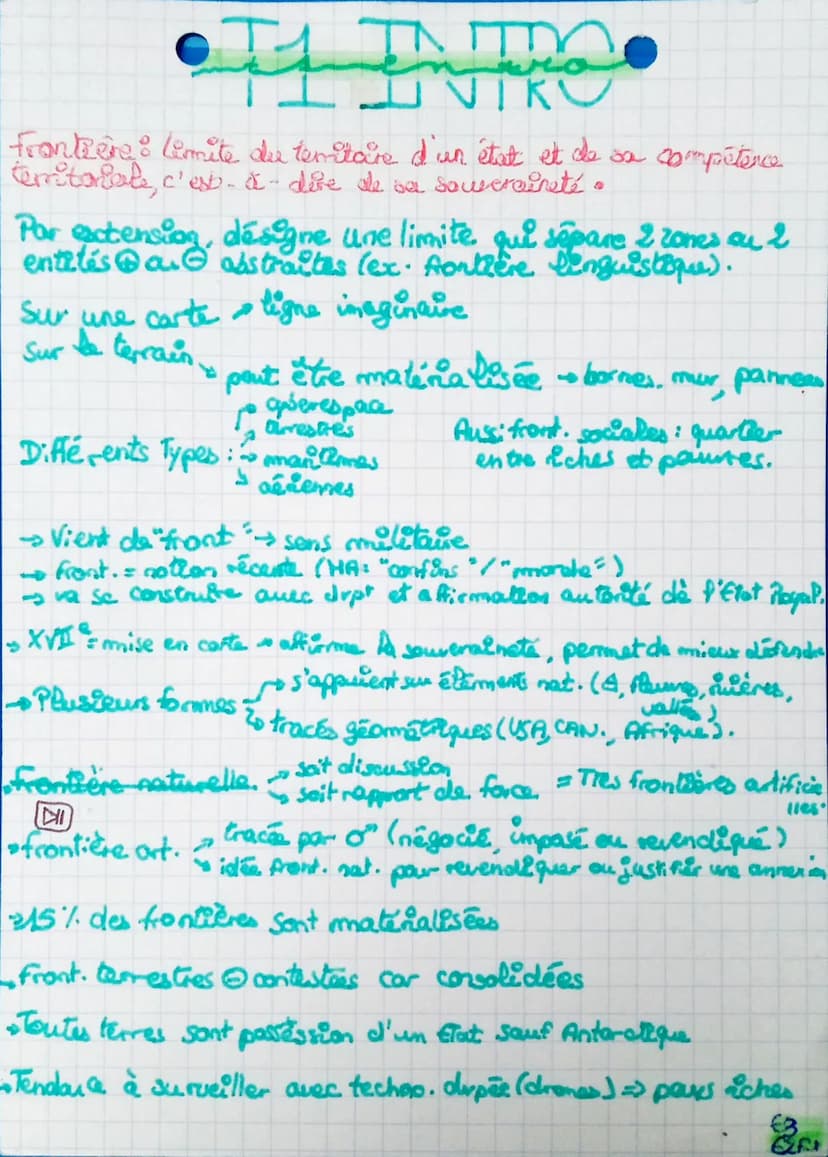 T1 INTRO
Intro
frontière : limite du territoire d'un état et de sa compétence
territoriale, c'est-à-dire de sa souveraineté.
Par extension, désigne une limite qui sépare 2 zones ou 2
entités ⊕ ou ⊖ abstraites (ex. frontière linguistique).
Sur une carte → ligne imaginaire
Sur le terrain
↘ peut être matérialisée → bornes, mur, panneau
cyberespace
terrestres
Aussi front. sociales : quartier
Différents Types : → maritimes
entre riches et pauvres.
aériennes
→ Vient de "front" → sens militaire
→ front. = notion récente (MA : "confins" / "marche")
→ va se construire avec dvpt et affirmation autorité de l'Etat Royal.
→ XVIIe = mise en carte → affirme la souveraineté, permet de mieux défendre
→ Plusieurs formes → s'appuient sur éléments nat. (Δ, fleuves, rivières,
vallée)
↳ tracés géométriques (USA, CAN., Afrique).
frontière naturelle. → soit discussion
↳ soit rapport de force = Ttes frontières artificie
lles.
→ frontière art. → tracée par σm (négocié, imposé ou revendiqué)
↘ idée front. nat. pour revendiquer ou justifier une annexion
→ 15% des frontières sont matérialisées
→ Front. terrestres ⊖ contestées car consolidées
→ Toutes terres sont possession d'un Etat sauf Antarctique
→ Tendance à surveiller avec techno. dvpée (drones) => pays riches